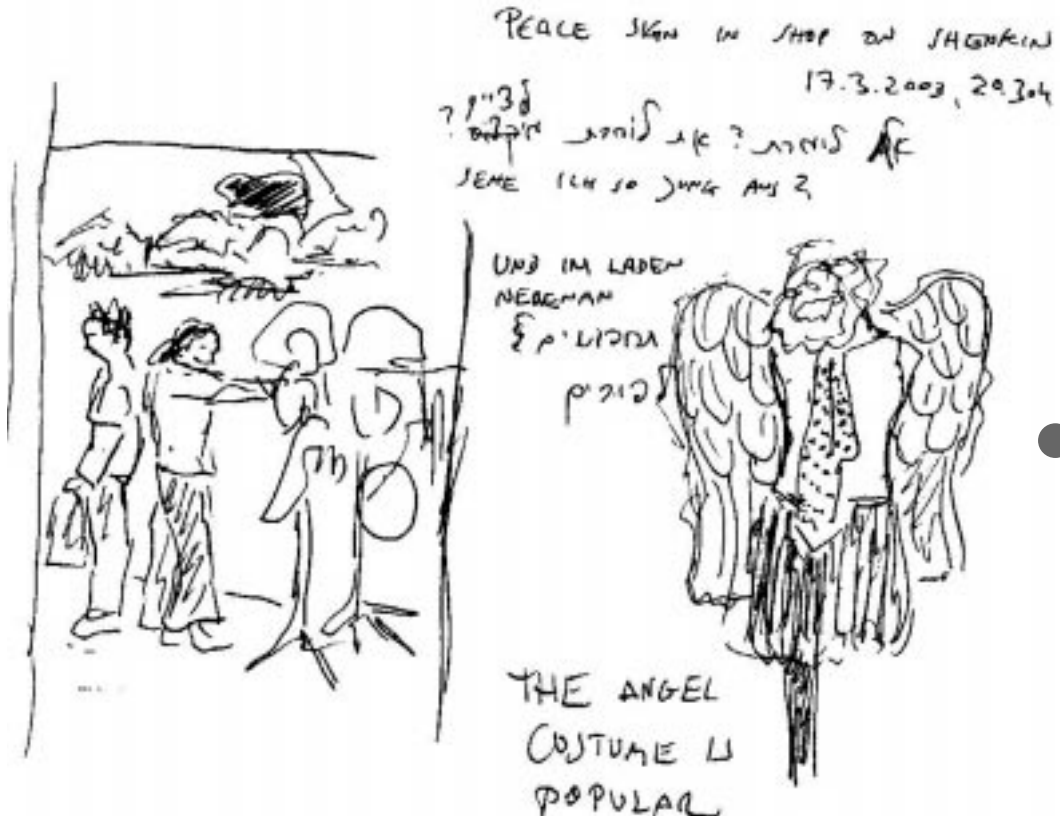 PEACE SIGN IN SHOP ON SHENKIN
17.3.2003, 20.30h
את לומדת? את לומדת לצייר?
SEHE ICH SO JUNG AUS?
UND IM LADEN
NEBENAN
לפורים
THE ANGEL
COSTUME IS
POPULAR